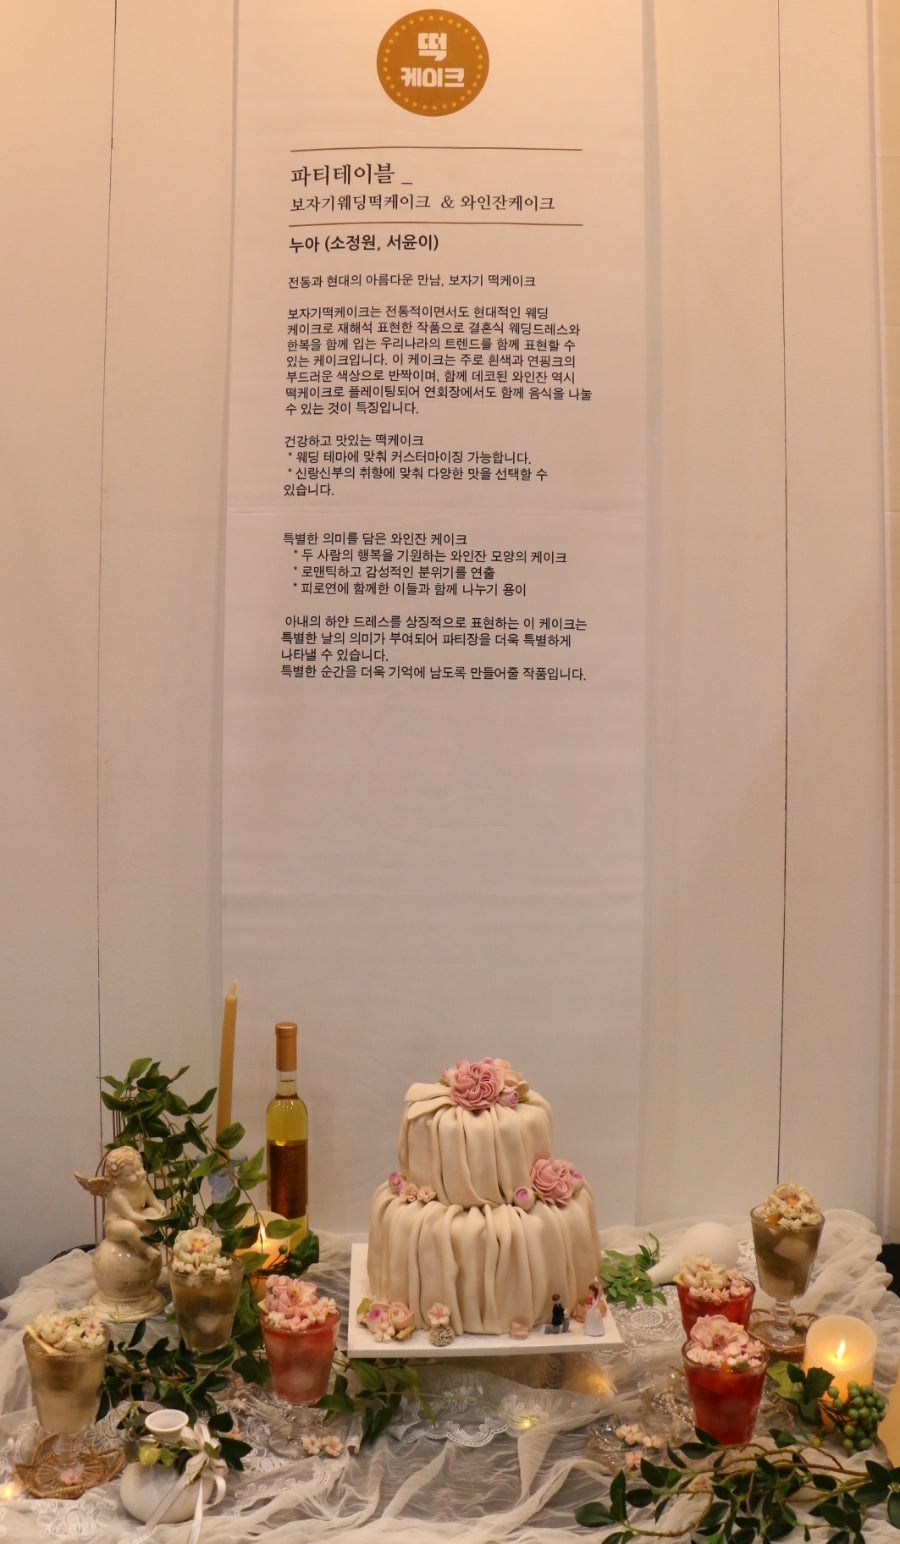 떡
케이크
파티테이블 _
보자기웨딩떡케이크 & 와인잔케이크
누아 (소정원, 서윤이)
전통과 현대의 아름다운 만남, 보자기 떡케이크
보자기떡케이크는 전통적이면서도 현대적인 웨딩
케이크로 재해석 표현한 작품으로 결혼식 웨딩드레스와
한복을 함께 입는 우리나라의 트렌드를 함께 표현할 수
있는 케이크입니다. 이 케이크는 주로 흰색과 연핑크의
부드러운 색상으로 반짝이며, 함께 데코된 와인잔 역시
떡케이크로 플레이팅되어 연회장에서도 함께 음식을 나눌
수 있는 것이 특징입니다.
건강하고 맛있는 떡케이크
* 웨딩 테마에 맞춰 커스터마이징 가능합니다.
* 신랑신부의 취향에 맞춰 다양한 맛을 선택할 수
있습니다.
특별한 의미를 담은 와인잔 케이크
* 두 사람의 행복을 기원하는 와인잔 모양의 케이크
* 로맨틱하고 감성적인 분위기를 연출
* 피로연에 함께한 이들과 함께 나누기 용이
아내의 하얀 드레스를 상징적으로 표현하는 이 케이크는
특별한 날의 의미가 부여되어 파티장을 더욱 특별하게
나타낼 수 있습니다.
특별한 순간을 더욱 기억에 남도록 만들어줄 작품입니다.